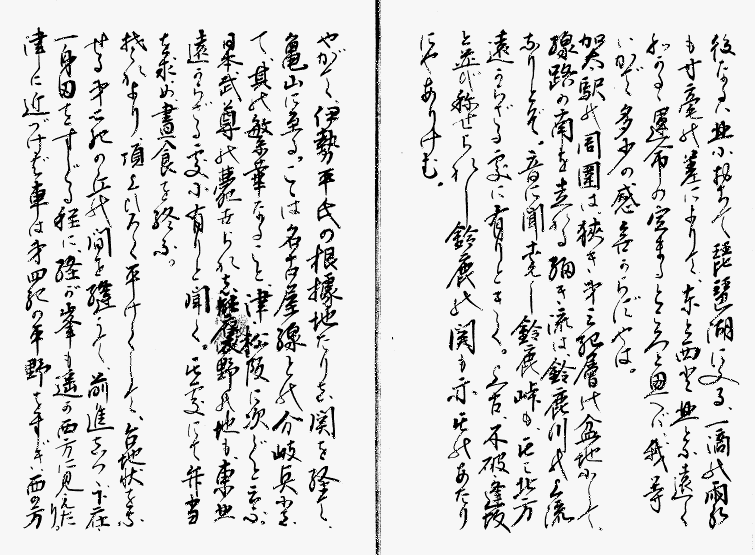 後なるは北に打ちて琵琶湖に入る、一滴の雨水
も寸毫の差によりて、東と西と北とに遠く
わかるゝ運命の定まるところと思へば、我等
いかで多少の感なからでやは。
加太駅の周囲は、狭き第三紀層の盆地にして、
線路の南を走れる細き流は、鈴鹿川の上流
なりとぞ。音に聞えし鈴鹿峠も、こゝ北方
遠からざる処に有りときく。上古、不破、逢坂
と並び称せられし鈴鹿の関も亦、此のあたり
にやありけむ。
やがて、伊勢平氏の根據地たりし、関を経て、
亀山に至る。こゝは名古屋線との分岐点に
て、其の繁華なること、津、松阪に次ぐと云ふ。
日本武尊の薨せられし能褒野の地も東北
遠からざる処に有りと聞く。此処にて弁当
を求め晝食を終ふ。
これより、頂上ひろく平けくして、台地状をな
せる第三紀の丘の間を縫うて、前進しつゝ下在、
一身田をすぐる程に、経が峯も遥か西方に見えたり。
津に近づけば、車は第四紀の平野をすぎ、西の方